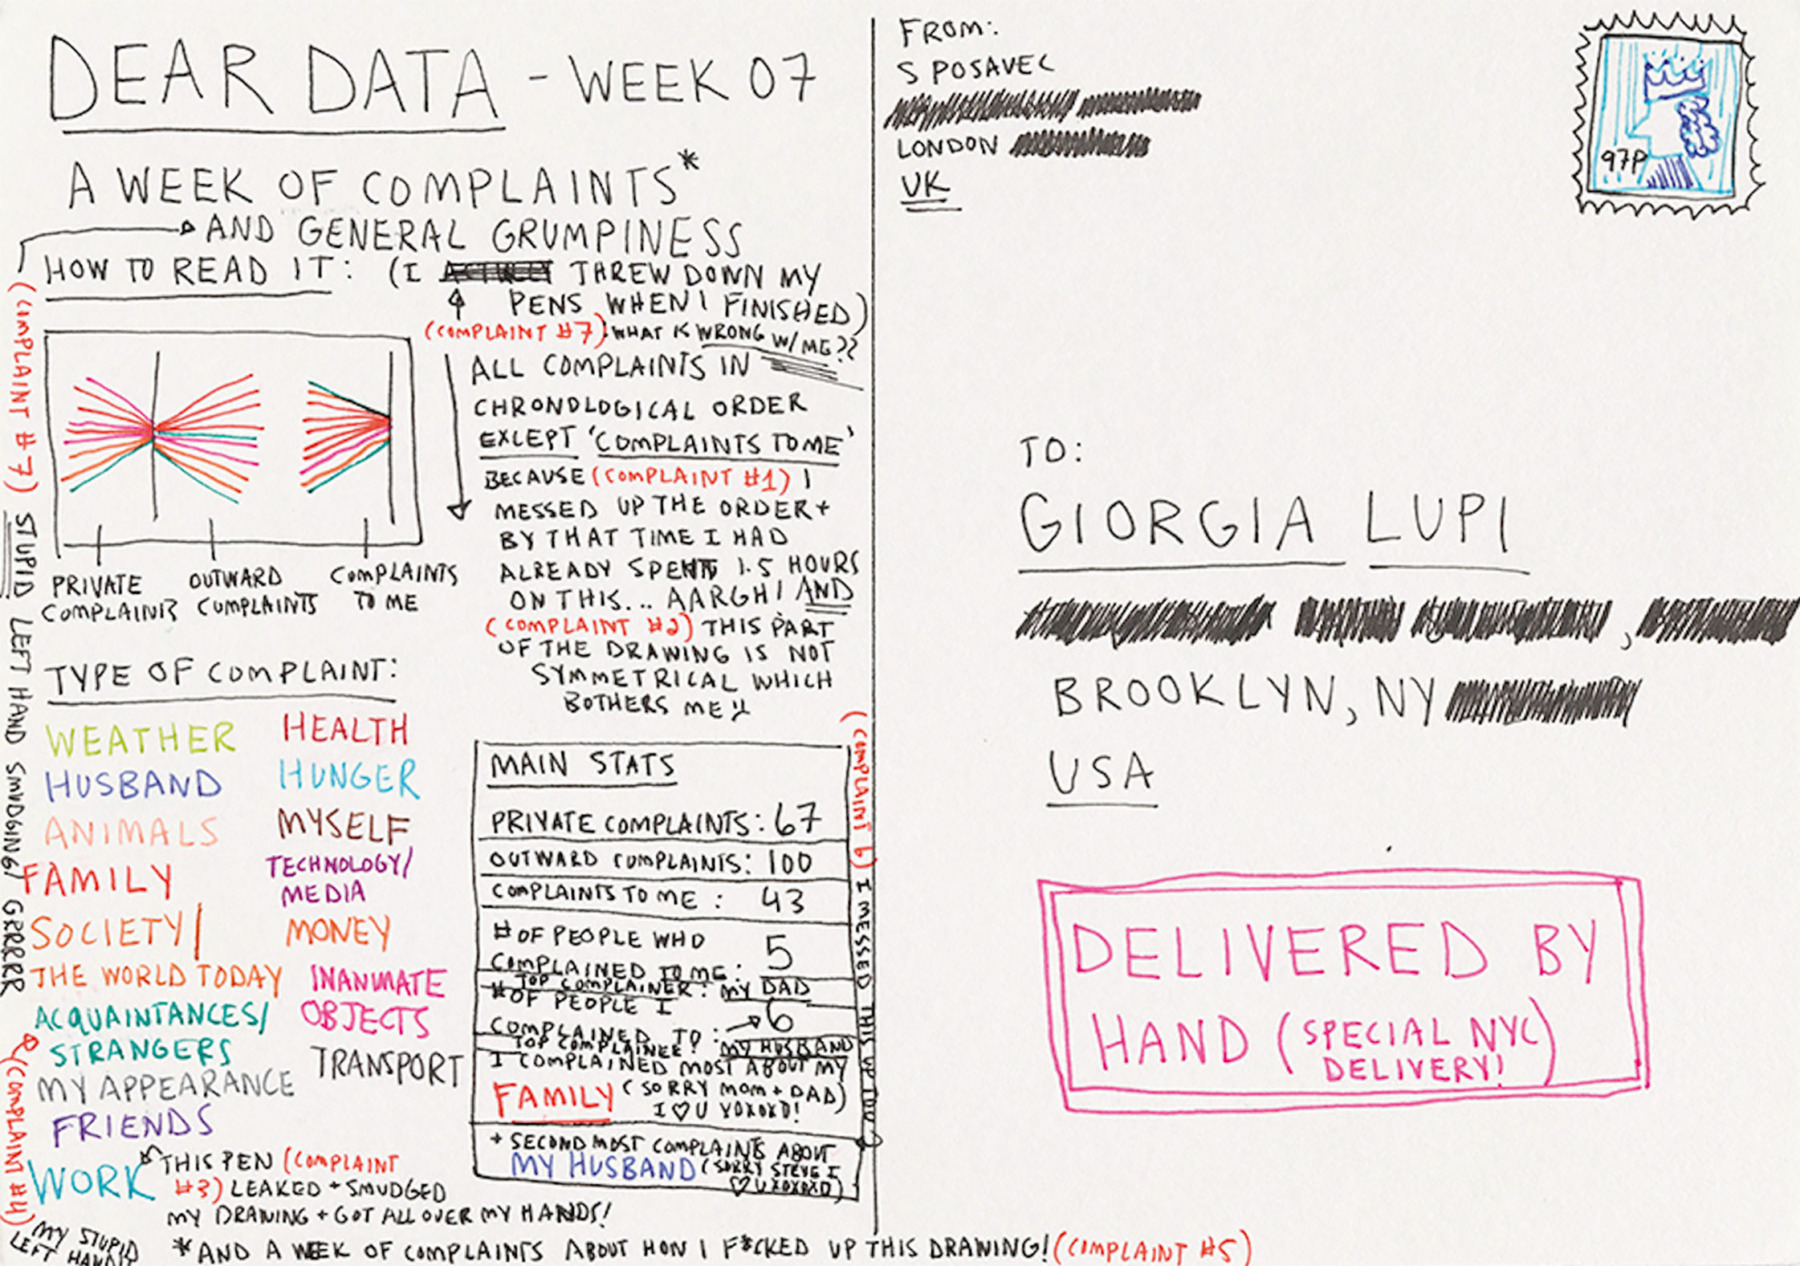 DEAR DATA - WEEK 07
A WEEK OF COMPLAINTS*
AND GENERAL GRUMPINESS
HOW TO READ IT: (I THREW DOWN MY
PENS WHEN I FINISHED)
(COMPLAINT #7): WHAT IS WRONG
W/ ME??
(COMPLAINT #7) STUPID LEFT HAND SMUDGING! GRRRRR
ALL COMPLAINTS IN
CHRONOLOGICAL ORDER
EXCEPT 'COMPLAINTS TO ME'
BECAUSE (COMPLAINT #1) I
MESSED UP THE ORDER +
BY THAT TIME I HAD
ALREADY SPENT 1.5 HOURS
ON THIS... AARGH! AND
(COMPLAINT #2) THIS PART
OF THE DRAWING IS NOT
SYMMETRICAL WHICH
BOTHERS ME
PRIVATE
COMPLAINTS
OUTWARD
COMPLAINTS
COMPLAINTS
TO ME
TYPE OF COMPLAINT:
WEATHER
HUSBAND
ANIMALS
FAMILY
SOCIETY/
THE WORLD TODAY
ACQUAINTANCES/
STRANGERS
MY APPEARANCE
FRIENDS
WORK
HEALTH
HUNGER
MYSELF
TECHNOLOGY/
MEDIA
MONEY
INANIMATE
OBJECTS
TRANSPORT
THIS PEN (COMPLAINT
#3) LEAKED + SMUDGED
MY DRAWING + GOT ALL OVER MY HANDS!
(COMPLAINT #4)
MY STUPID
LEFT HAND!!
MAIN STATS
PRIVATE COMPLAINTS: 67
OUTWARD COMPLAINTS: 100
COMPLAINTS TO ME: 43
# OF PEOPLE WHO
COMPLAINED TO ME: 5
TOP COMPLAINER: MY DAD
# OF PEOPLE I
COMPLAINED TO: 6
TOP COMPLAINEE: MY HUSBAND
I COMPLAINED MOST ABOUT MY
FAMILY (SORRY MOM + DAD)
I ♡ U XOXOXO!
+ SECOND MOST COMPLAINTS ABOUT
MY HUSBAND (SORRY STEVE I
♡ U XOXOXO)
(COMPLAINT 6) I MESSED THIS UP TOO
*AND A WEEK OF COMPLAINTS ABOUT HOW I F*CKED UP THIS DRAWING! (COMPLAINT #5)
FROM:
S POSAVEC
LONDON
UK
97P
TO:
GIORGIA LUPI
BROOKLYN, NY
USA
DELIVERED BY
HAND (SPECIAL NYC
DELIVERY!)